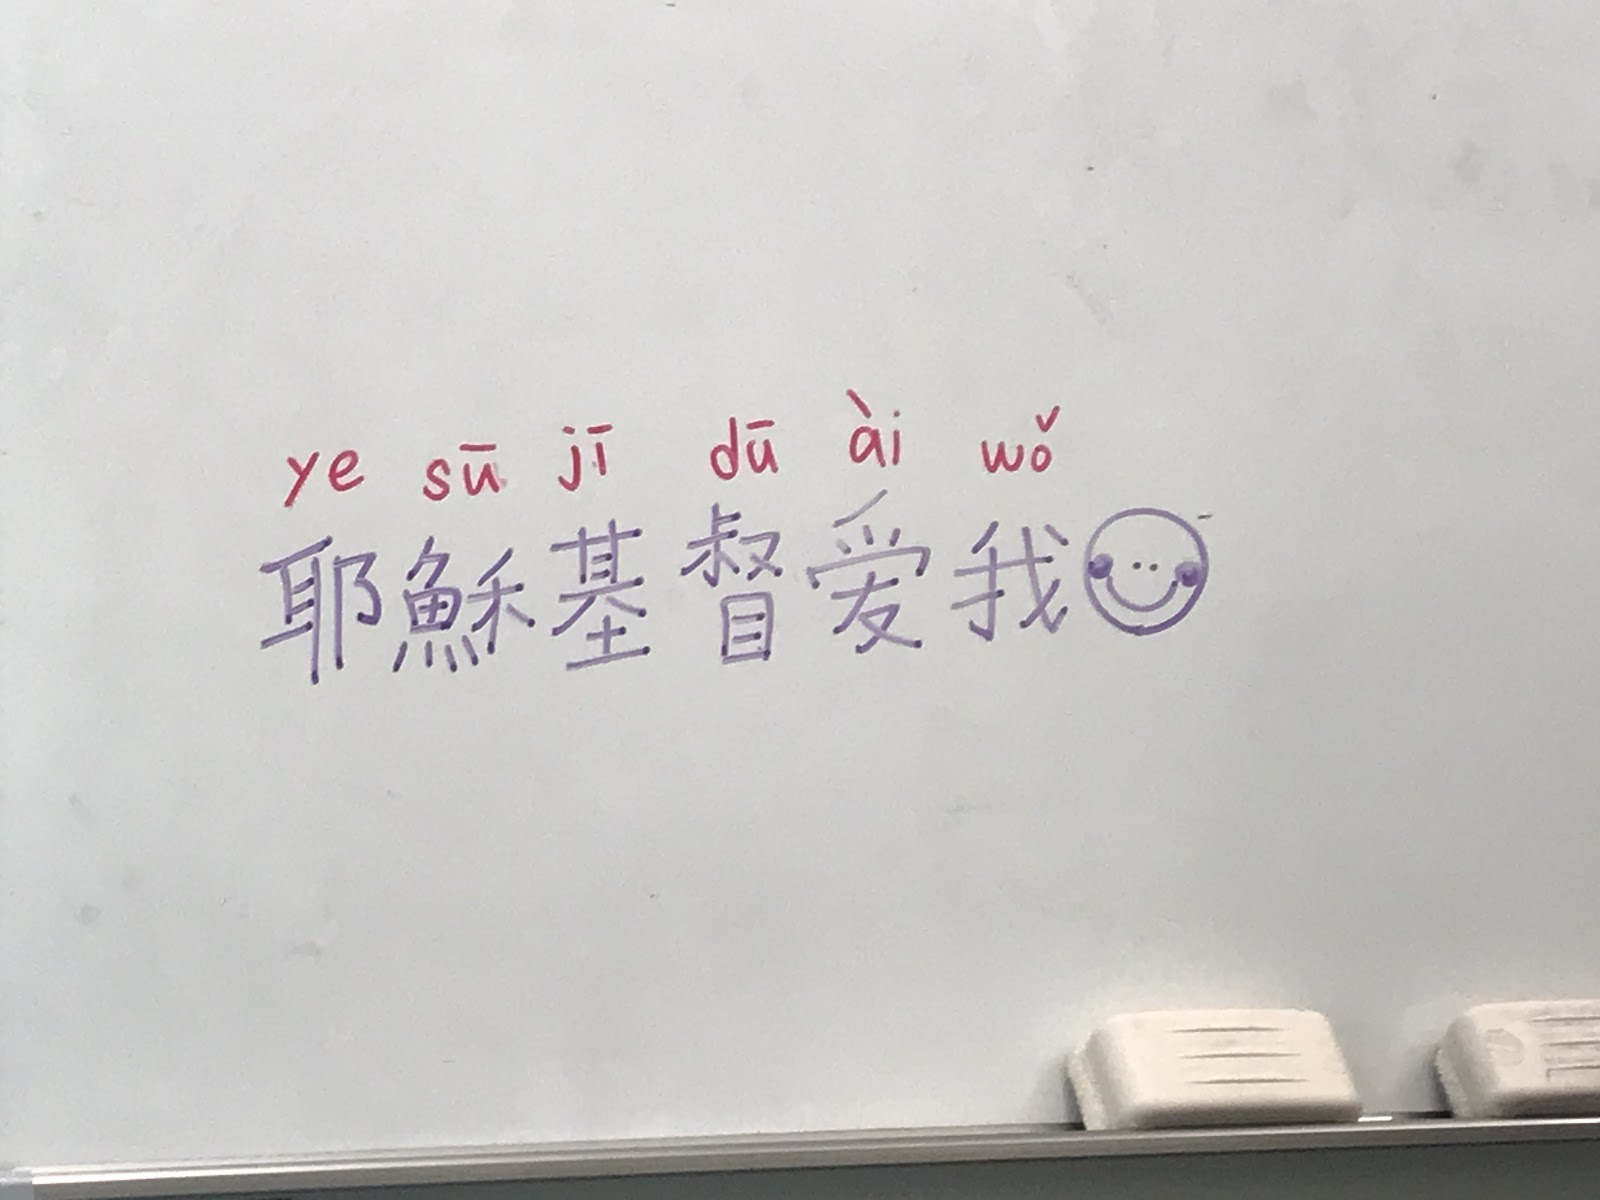 ye sū jī dū ài wǒ
耶穌基督爱我